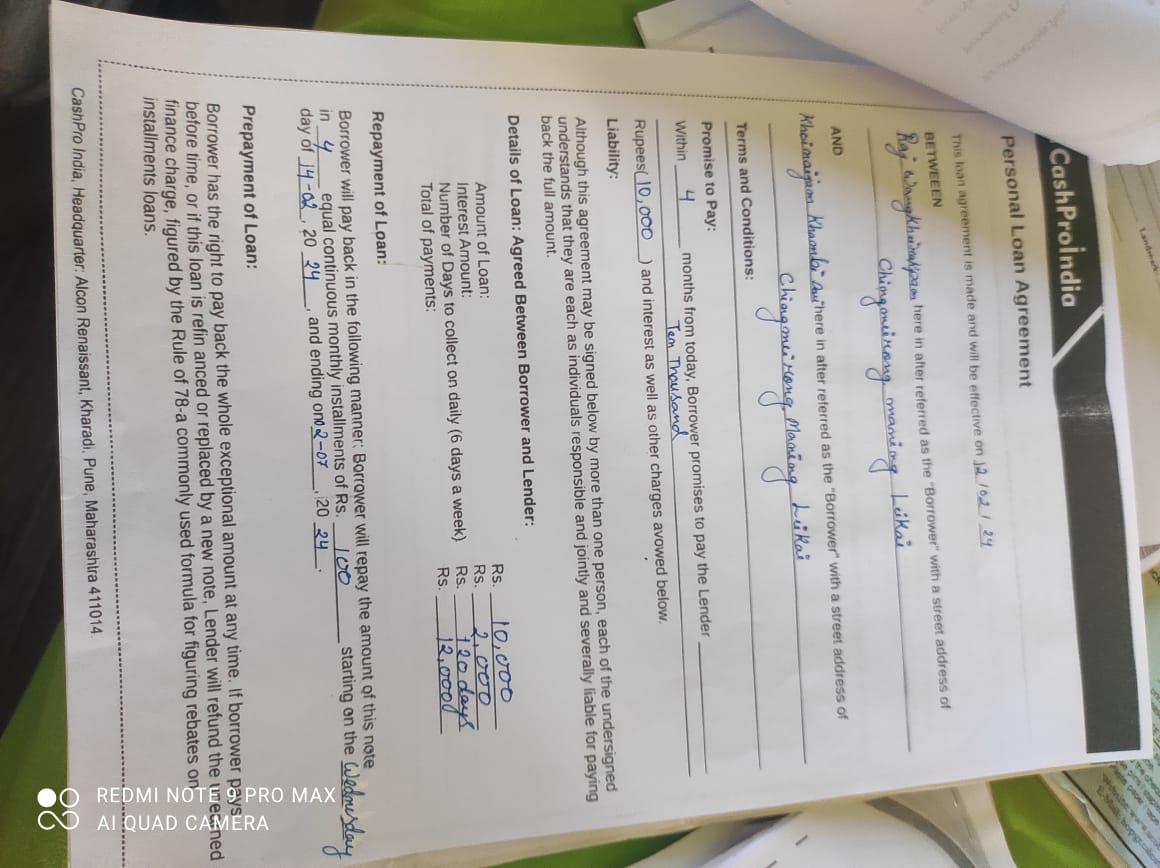 CashProIndia
Personal Loan Agreement
This loan agreement is made and will be effective on 12 / 02 / 24
BETWEEEN
Raj Wangkheirakpam here in after referred as the "Borrower" with a street address of
Chingmeirong maning Leikai
AND
Khoirom Khaonbi Devi here in after referred as the "Borrower" with a street address of
Chingmeirong, Maning Leikai
Terms and Conditions:
Promise to Pay:
Within 4 months from today, Borrower promises to pay the Lender
Ten Thousand
Rupees( 10,000 ) and interest as well as other charges avowed below.
Liability:
Although this agreement may be signed below by more than one person, each of the undersigned
understands that they are each as individuals responsible and jointly and severally liable for paying
back the full amount.
Details of Loan: Agreed Between Borrower and Lender:
Amount of Loan: Rs. 10,000
Interest Amount: Rs. 2,000
Number of Days to collect on daily (6 days a week) Rs. 120 days
Total of payments: Rs. 12,000/
Repayment of Loan:
Borrower will pay back in the following manner: Borrower will repay the amount of this note
in 4 equal continuous monthly installments of Rs. 100 starting on the Wednesday
day of 14-02 , 20 24 , and ending on 02-07 , 20 24 .
Prepayment of Loan:
Borrower has the right to pay back the whole exceptional amount at any time. If borrower pays
before time, or if this loan is refin anced or replaced by a new note, Lender will refund the unearned
finance charge, figured by the Rule of 78-a commonly used formula for figuring rebates on
installments loans.
CashPro India, Headquarter: Alcon Renaissant, Kharadi, Pune, Maharashtra 411014.
REDMI NOTE 9 PRO MAX
AI QUAD CAMERA